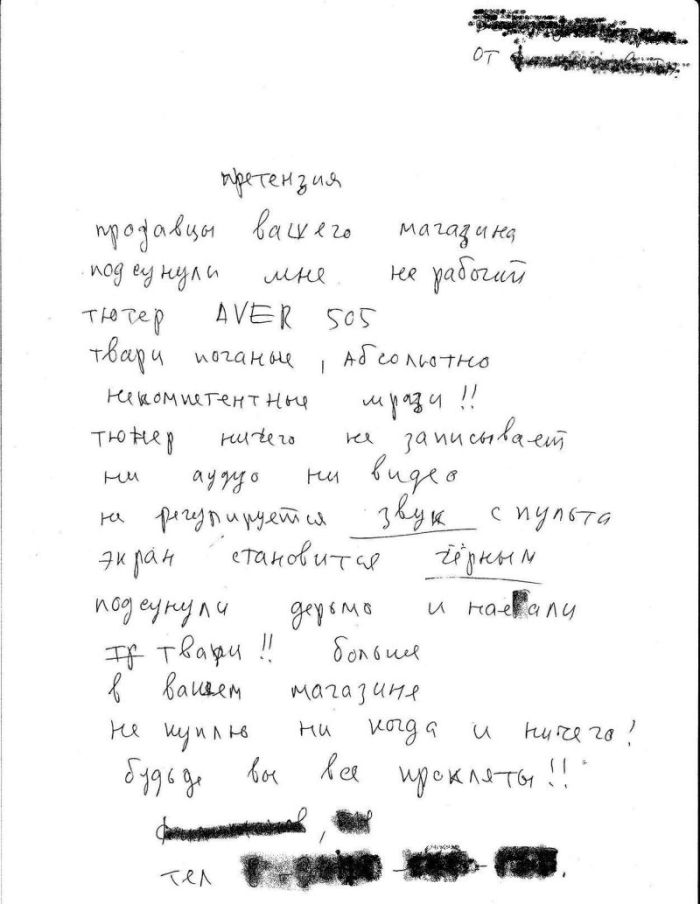 от
претензия
продавцы вашего магазина
подсунули мне не рабочий
тютер AVER 505
твари поганые, абсольотно
некомпетентные мрази!!
тюнер ничего не записывает
ни аудуо ни видео
не регулируется звук с пульта
экран становится чёрным
подсунули дерьмо и нае али
твари!! больше
в вашем магазине
не куплю ни когда и ничего!
будьде вы все прокляты!!
,
тел